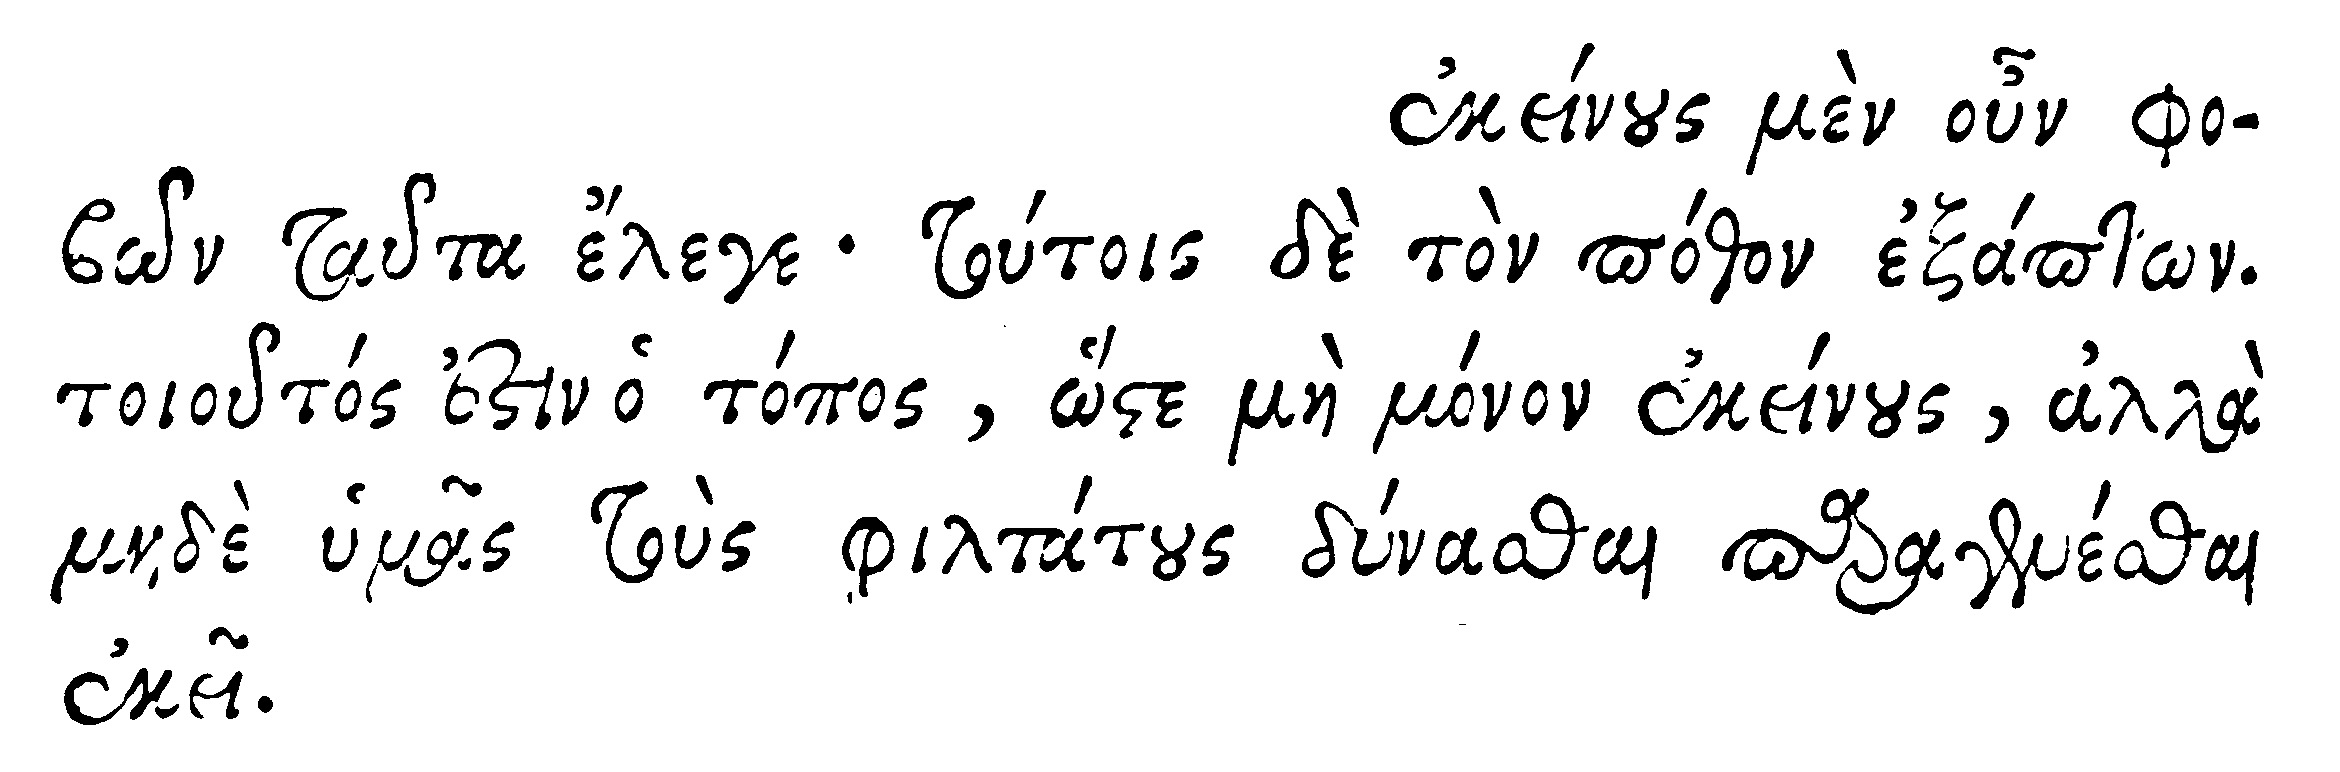 ἐκείνους μὲν οὖν φο-
βῶν ταῦτα ἔλεγε· τούτοις δὲ τὸν πόθον ἐξάπτων.
τοιοῦτός ἐστιν ὁ τόπος, ὥστε μὴ μόνον ἐκείνους, ἀλλὰ
μηδὲ ὑμᾶς τοὺς φιλτάτους δύνασθαι παραγενέσθαι
ἐκεῖ.